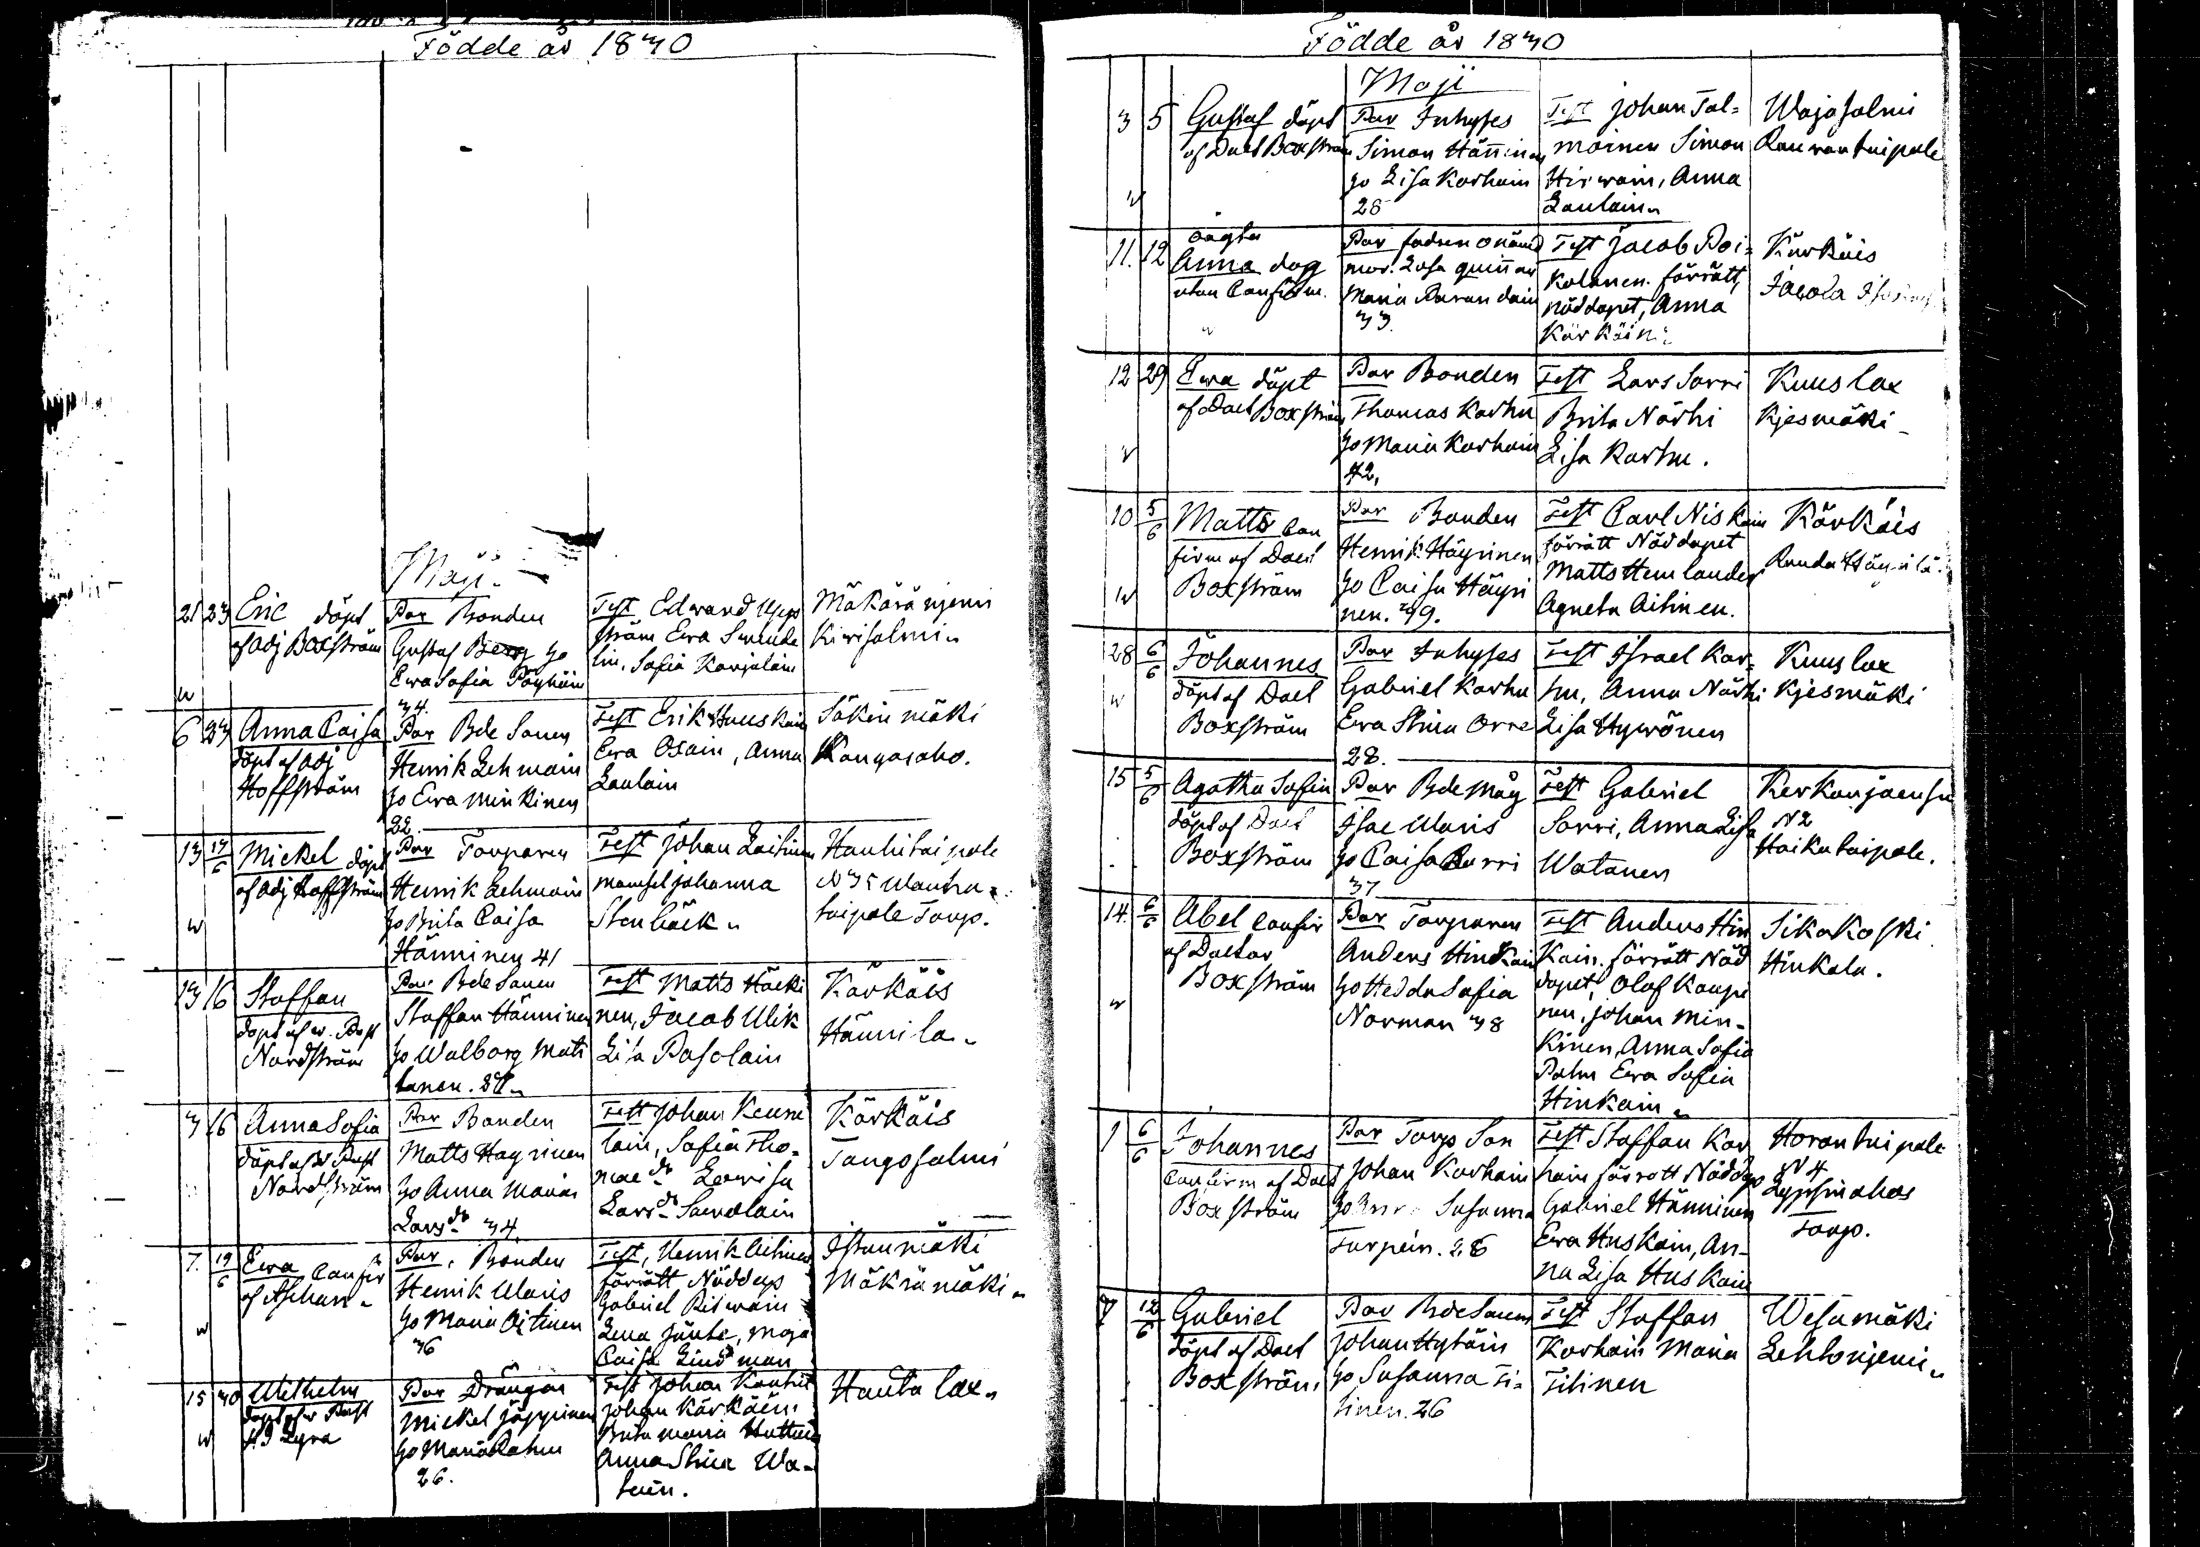 Födde år 1830
Maji
21 23 Eric döpt
af Adj Boxström
Par Bonden
Gustaf Berg Ho
Ewa Sofia Pöyhöin
34.
Test Edward
ström Ewa
lin, Sofia Karjalain
Mäkäräniemi
Kirisalmi
6 23 Anna Caisa
döpt af Adj
Hoffström
Par Bde Sonen
Henrik Lehmain
Ho Ewa Minkinen
22.
Test Erik Huuskain
Ewa Osain, Anna
Laulain
Säkin mäki
Kangasaho.
13 14/6 Mickel döpt
af Adj Hoffström
Par Torparen
Henrik Lehmain
Ho Brita Caisa
Hänninen 41
Test Johan Laitinen
Mamsel Johanna
Stenbäck
Hankitaipale
N 35
taipale Torp.
13 16 Staffan
döpt af w. Past
Nordström
Par Bde Sonen
Staffan Hänninen
Ho Walborg Mati
lanen.
Test Matts Häcki
nen, Jacob Ulik
Lisa Pasolain
Kärkäis
Hännila
3 16 Anna Sofia
döpt af w Past
Nordström
Par Bonden
Matts Häyrinen
Ho Anna Maria
Larsdr 34
Test Johan
lain, Sofia Tho-
mae dr Lowisa
Larsdr
Kärkäis
Tangosalmi
7. 19/6 Ewa Confir
af Aschan
Par, Bonden
Henrik Ulanis
Ho Maria Aitinen
36
Test, Henrik Aitinen
förrätt Nöddop
Gabriel Ritwain
Lena Jänte, Maja
Caisa Lindman
Istunmäki
Mäkrämäki
15 30 Wilhelm
döpt af w Past
Lyra
Par Drängen
Mickel Jäppinen
Ho Maria Rahm
26.
Test Johan
Johan Kärkäin
Brita Maria Huttuin
Anna Stina Wa-
tain.
Hanka lax
Födde år 1830
Maji
3 5 Gustaf döpt
af Doct Boxström
Par Inhyses
Simon Hänninen
Ho Lisa Korhoin
28
Test Johan Tal-
moinen Simon
Hirwoin, Anna
Laulain
Wajasalmi
Rauwantaipale
11. 12 oägta
Anna dog
utan Confirm.
Par fadren onämd
mor. Lösa quinnan
Maria Parandain
33.
Test Jacob Poi-
kolanen. förrätt,
nöddopet, Anna
Kärkäin
Kärkäis
Jacola
12 29 Ewa döpt
af Doct Boxström
Par Bonden
Thomas Karhu
Ho Maria Korhoin
42,
Test Lars Sorri
Brita Närhi
Lisa Karhu.
Kuuslax
Kjesmäki
10 5/6 Matts Con
firm af Doct
Boxström
Par Bonden
Henrik Häyrinen
Ho Caisa Häyri
nen. 39.
Test Carl Niskain
förrätt Nöddopet
Matts Hemlander
Agneta Aitinen.
Kärkäis
Randa Häyrilä.
28 6/6 Johannes
döpt af Doct
Boxström
Par Inhyses
Gabriel Karhu
Ewa Stina Orre
28.
Test Israel Kar-
hu, Anna Närhi
Lisa Hywönen
Kuuslax
Kjesmäki
15 5/6 Agatha Sofia
döpt af Doct
Boxström
Par Bde måg
Isac Ulanis
Ho Caisa Burri
37
Test Gabriel
Sorri, Anna Lisa
Watanen
Kerkonjoensu
N 2
Haikutaipale.
14. 6/6 Abel Confir
af Doctor
Boxström
Par Torparen
Anders Hinkain
Ho Hedda Sofia
Norman 38
Test Anders Hin
kain. förrätt Nöd
dopet, Olof Kaupi
nen, Johan Min-
kinen, Anna Sofia
Palm Ewa Sofia
Hinkain
Sikakoski
Hinkala.
1 6/6 Johannes
Confirm af Doct
Boxström
Par Torp Son
Johan Korhoin
Ho Susanna
Turpein. 26
Test Staffan Kor
hoin förrätt Nöddop
Gabriel Hänninen
Ewa Huskain, An-
na Lisa Huskain
Horontaipale
N 4
Torp.
7 12/6 Gabriel
döpt af Doct
Boxström,
Par Bde Sonen
Johan Hytöin
Ho Susanna Ti-
tinen. 26
Test Staffan
Korhoin Maria
Titinen
Wesamäki
Lehtoniemi